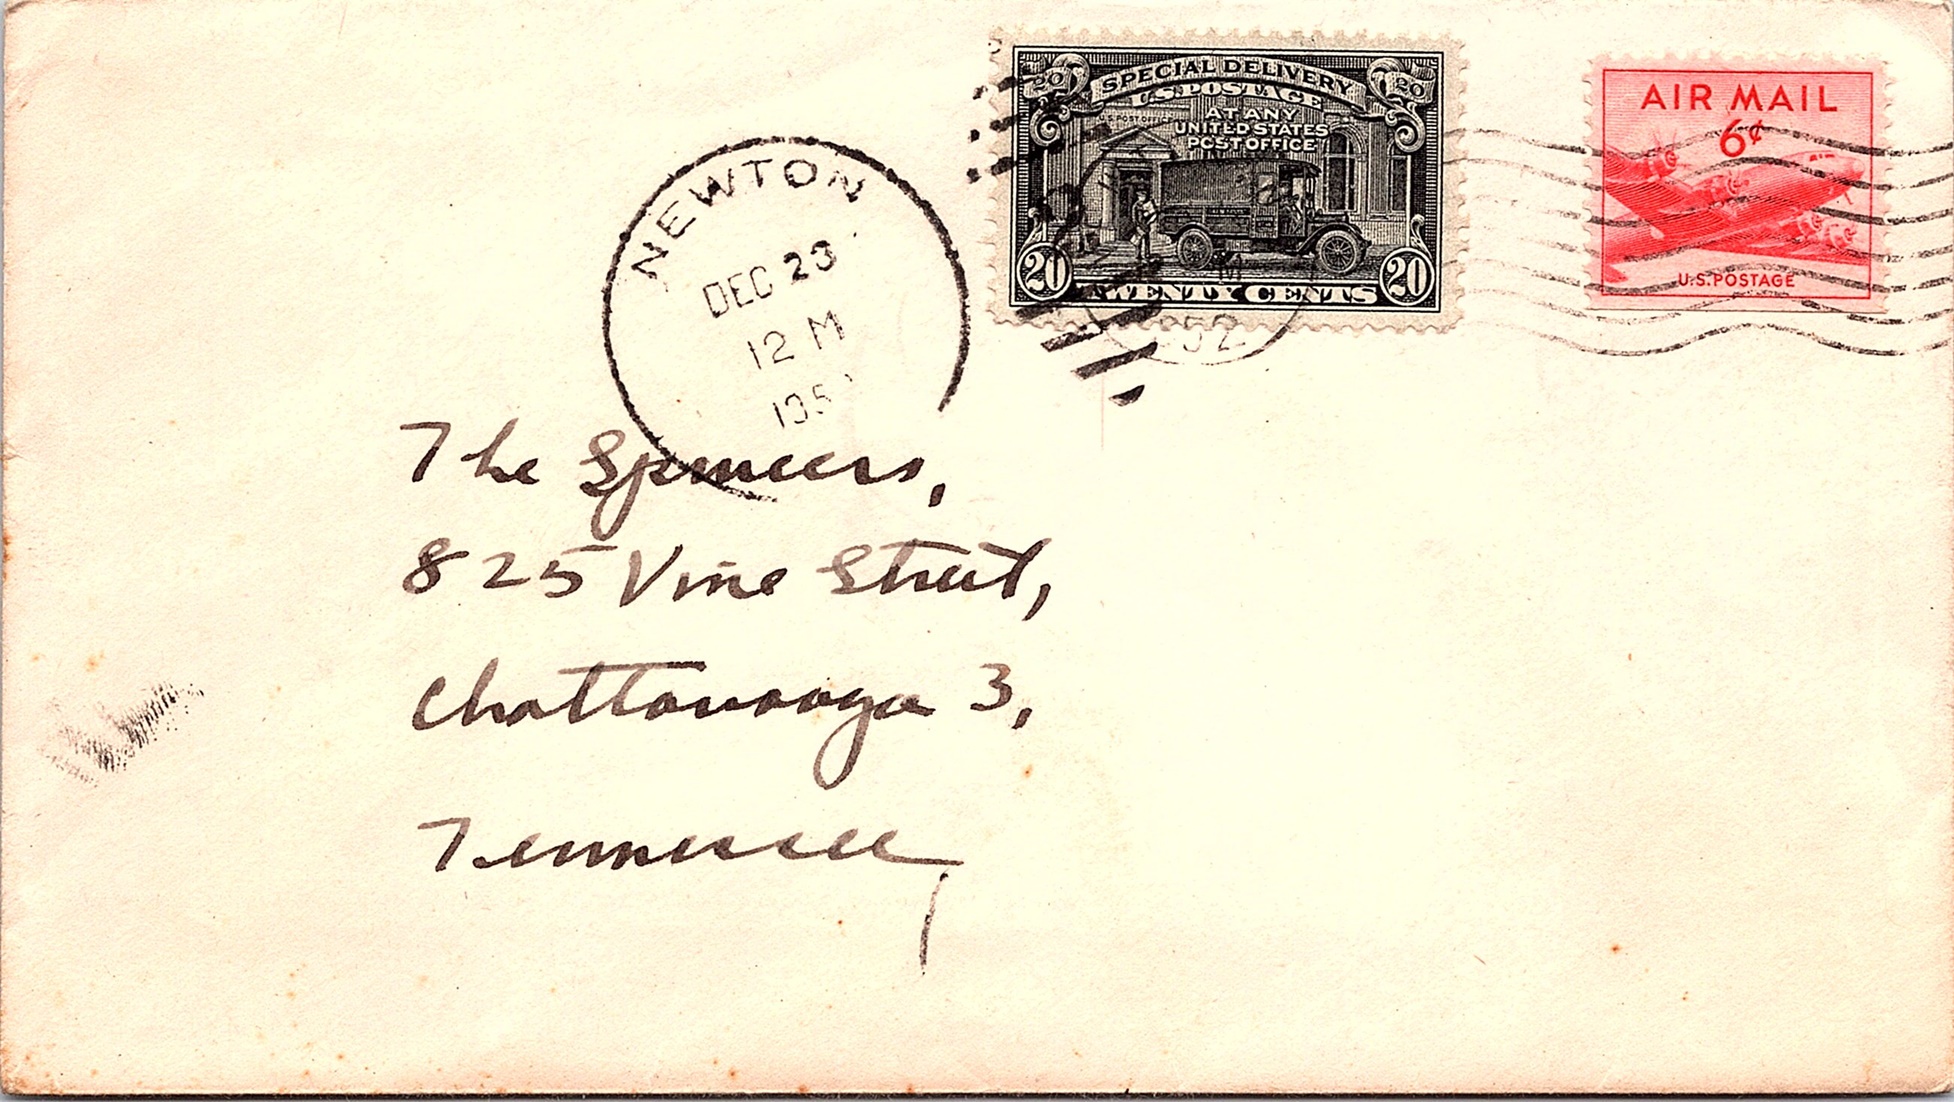 20 SPECIAL DELIVERY 20
U.S. POSTAGE
AT ANY
UNITED STATES
POST OFFICE
20 TWENTY CENTS 20
AIR MAIL
6¢
U.S. POSTAGE
NEWTON
DEC 23
12 M
195
M
952
The Spencers,
825 Vine Street,
Chattanooga 3,
Tennessee